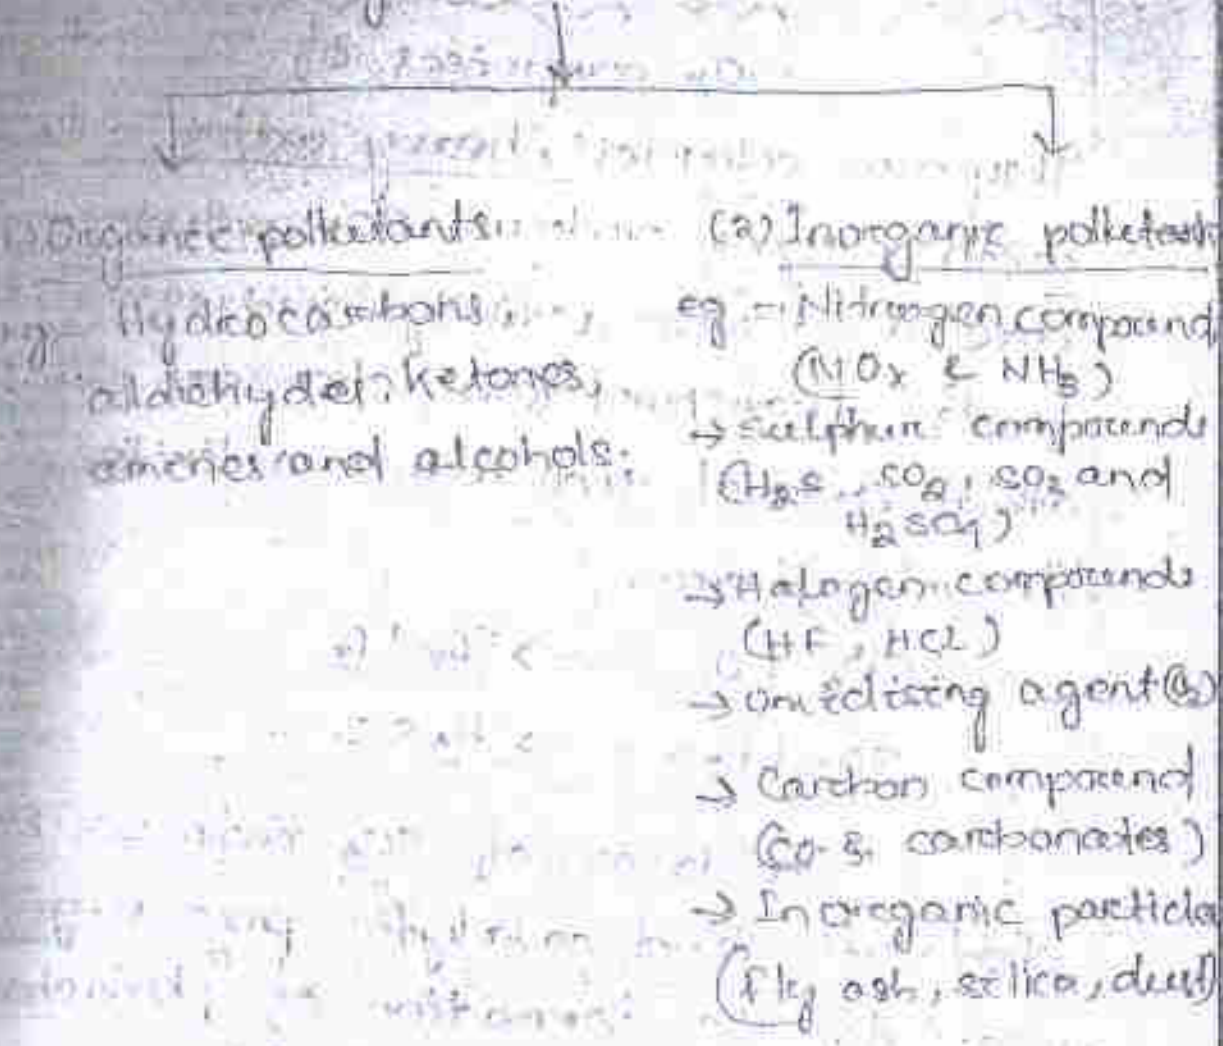 (1) Organic pollutants
eg - Hydrocarbons,
aldehydes, ketones,
amines and alcohols.
(2) Inorganic pollutant
eg - Nitrogen compound
(NOx & NH3)
→ Sulphur compounds
(H2S, SO2, SO3 and
H2SO4)
→ Halogen compounds
(HF, HCl)
→ Oxidising agent (O3)
→ Carbon compound
(CO & carbonates)
→ Inorganic particle
(fly ash, silica, dust)